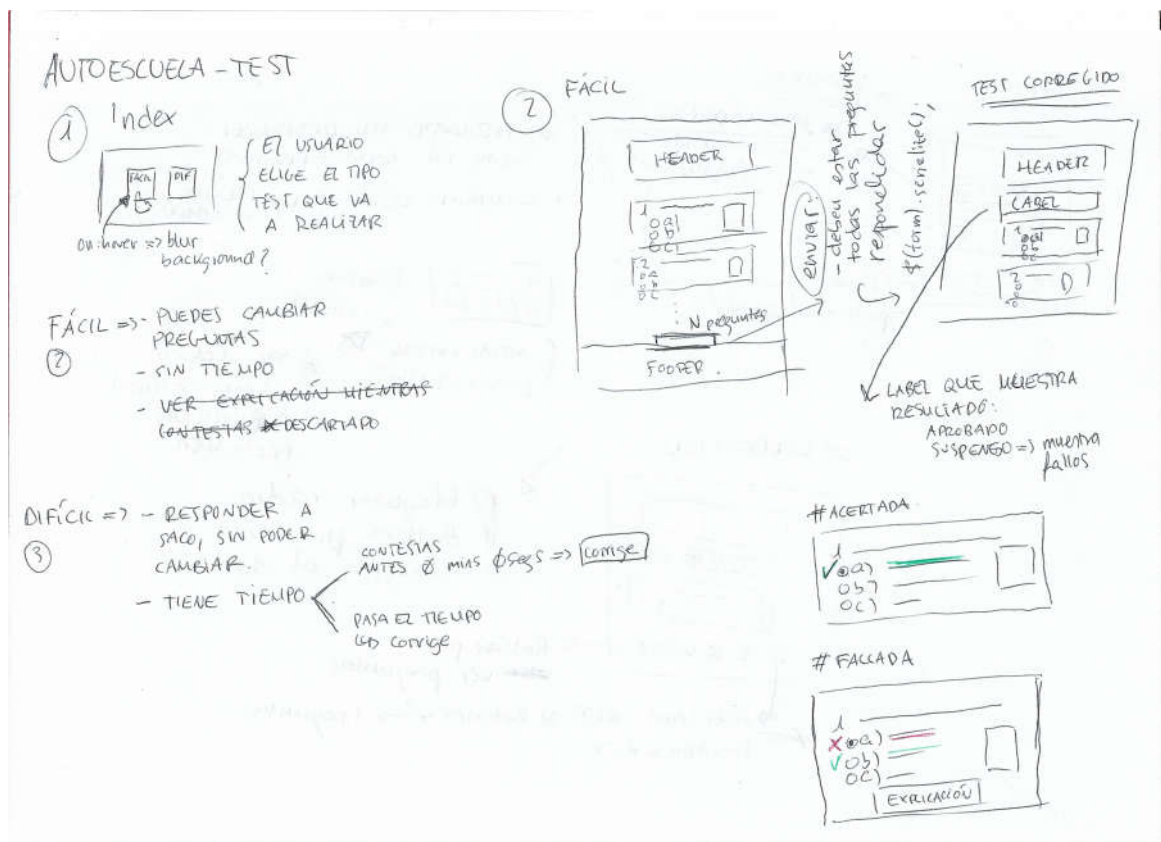 AUTOESCUELA - TEST
1 Index
FÁCIL DIF
EL USUARIO
ELIGE EL TIPO
TEST QUE VA
A REALIZAR
on:hover => blur
background?
FÁCIL => - PUEDES CAMBIAR
PREGUNTAS
2
- SIN TIEMPO
- VER EXPLICACIÓN MIENTRAS
CONTESTAS DESCARTADO
DIFÍCIL => - RESPONDER A
3
SACO, SIN PODER
CAMBIAR.
- TIENE TIEMPO
CONTESTAS
ANTES Ø mins Øsegs => corrige
PASA EL TIEMPO
corrige
2 FÁCIL
HEADER
1
a)
b)
c)
2
a
b
c
N preguntas
FOOTER.
enviar:
- deben estar
todas las preguntas
respondidas
$(form).serielite();
TEST CORREGIDO
HEADER
LABEL
1 a)
b
c
2
LABEL QUE MUESTRA
RESULTADO:
APROBADO
SUSPENSO => muestra
fallos
#ACERTADA
1
a)
b)
c)
# FALLADA
1
a)
b)
c)
EXPLICACIÓN